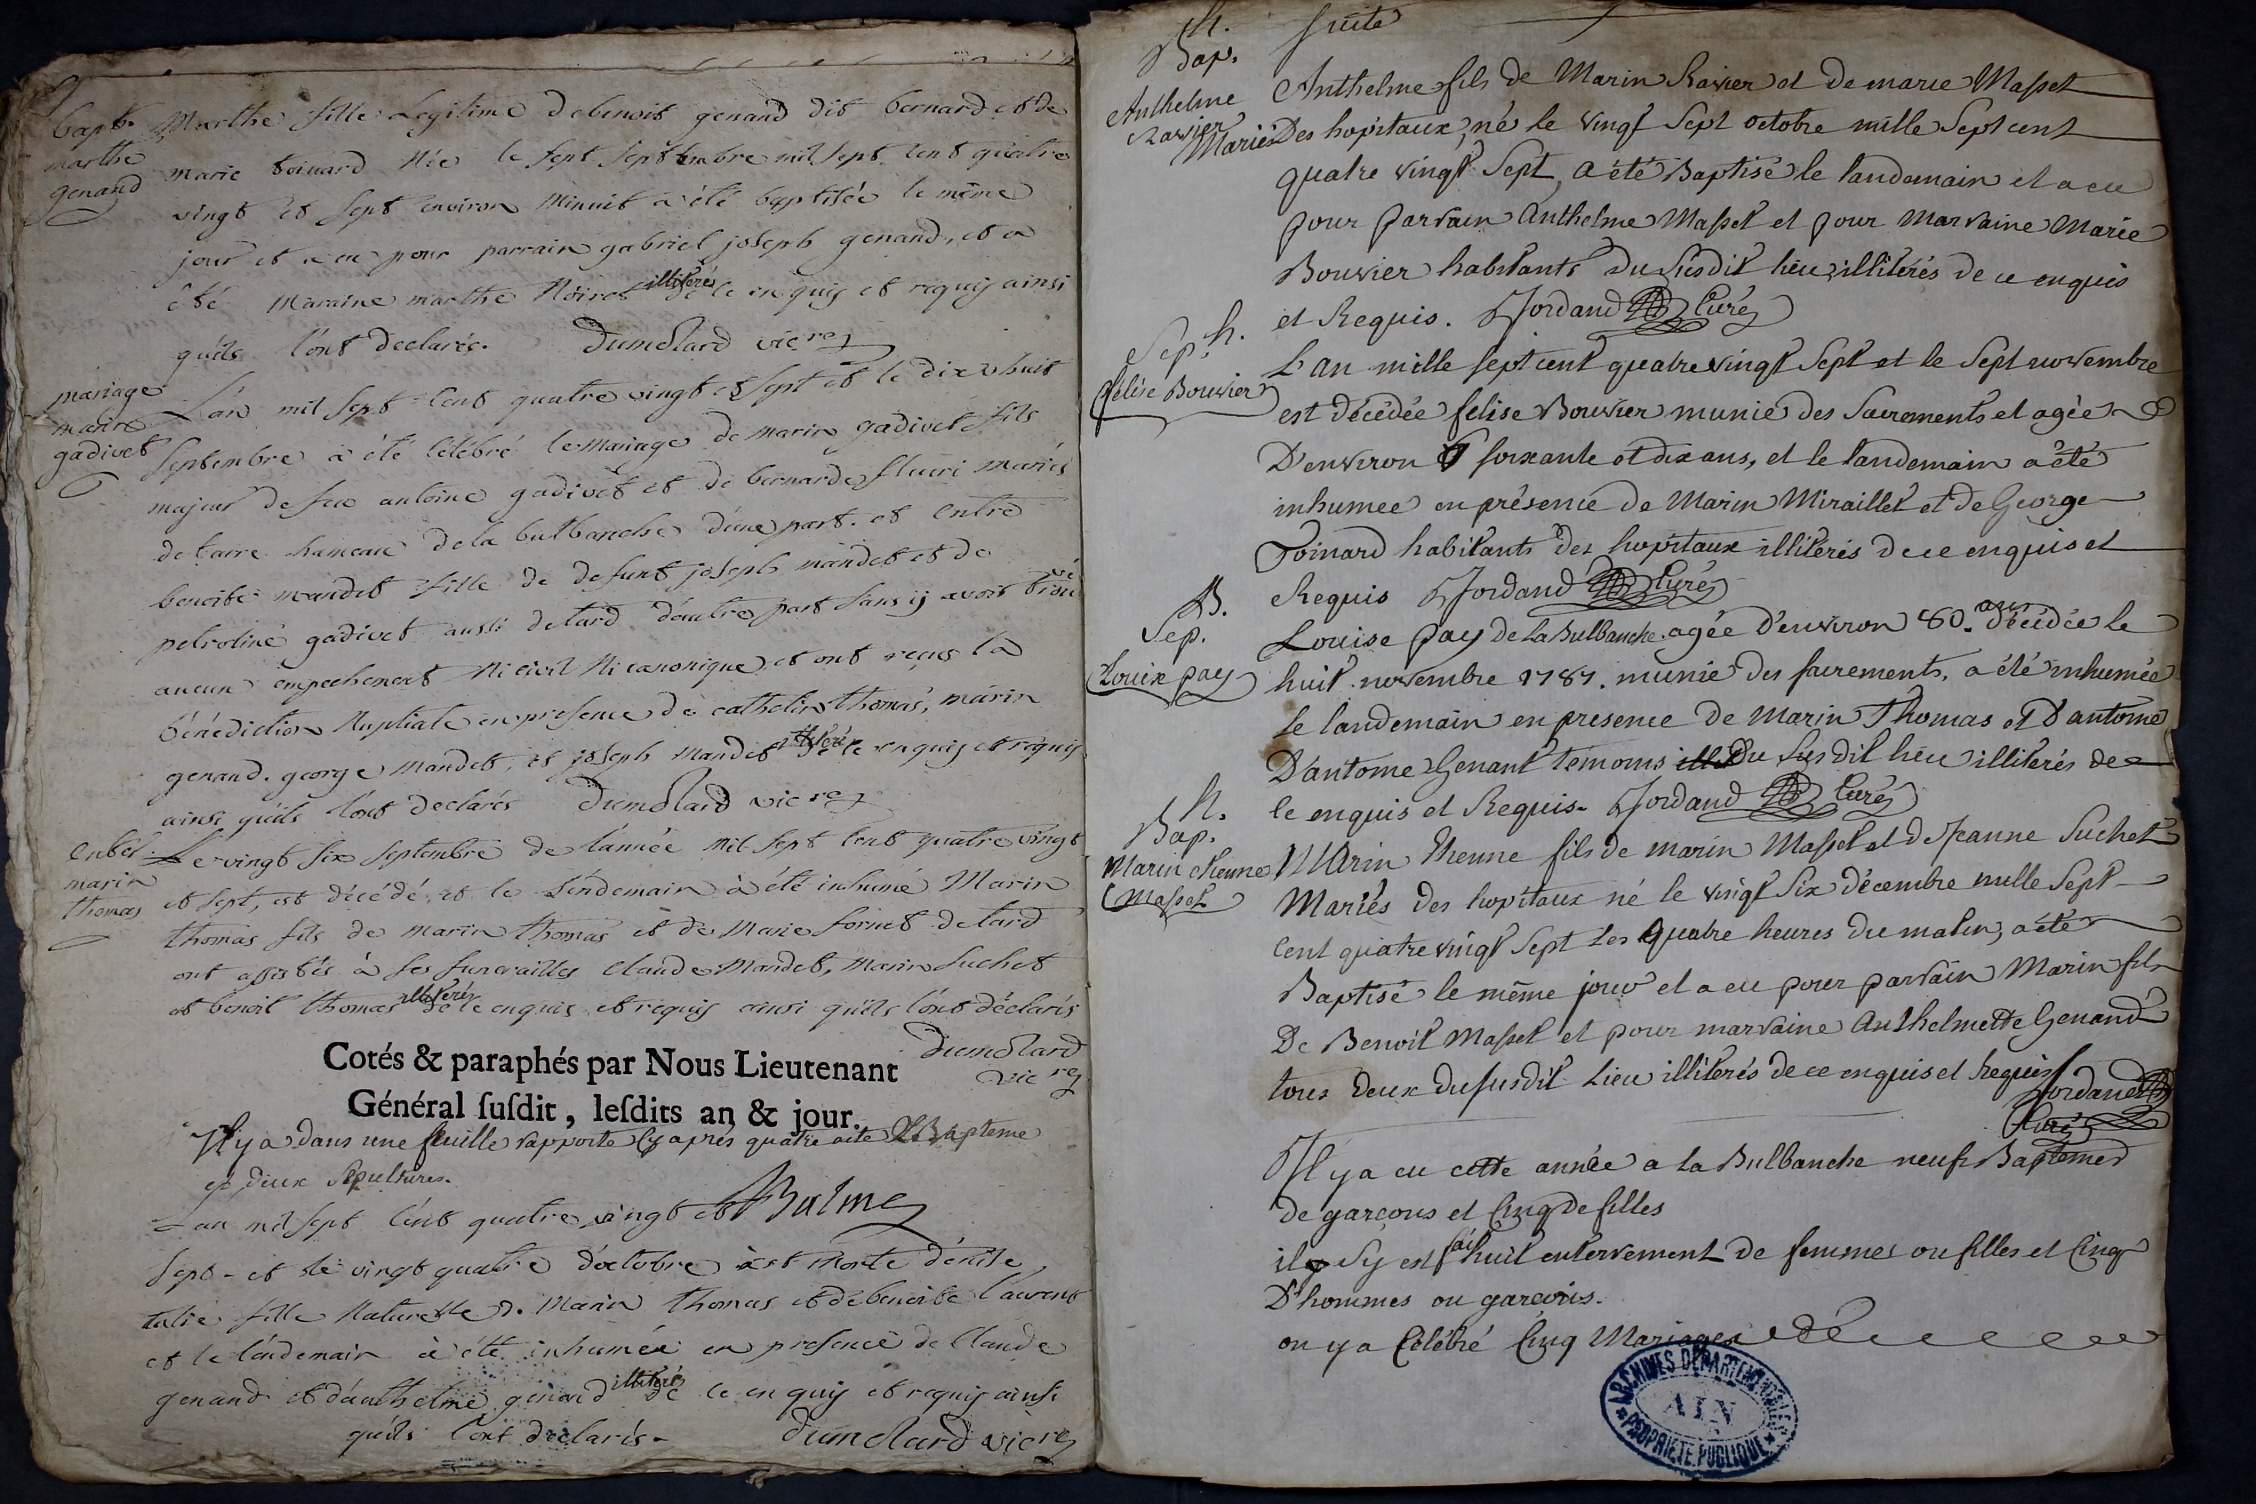 bapt.
marthe
genand
Marthe fille Legitime de benoit genand dit bernard et de
marie toinard Née le sept septembre mil sept cent quatre
vingt et sept environ Minuit à été baptisée le même
jour et a eu pour parrain gabriel joseph genand, et a
été Maraine marthe Noiret illiterés de ce enquis et requis ainsi
qu'ils l'ont declarée. Dumolard vicre
mariage
marin
gadivet
L'an mil sept cent quatre vingt et sept et le dix huit
septembre à été célébré le mariage de marin gadivet fils
majeur de feu antoine gadivet et de bernarde fleuri mariés
de hameau de la bulbanche d'une part. et entre
benoite mandet fille de defunt joseph mandet et de
petroline gadivet aussi de tard d'autre part sans ij avoir trouvé
aucun émpechement Ni civil Ni canonique et ont reçus la
bénédiction Nuptiale en presence de cathelin thomas, marin
genand. george mandet, et joseph mandet illiterés de ce enquis et requis
ainsi qu'ils l'ont declarés Dumolard vicre
marin
thomas
Le vingt six septembre de l'année mil sept cent quatre vingt
et sept, est décédé, et le lendemain à été inhumé Marin
thomas fils de marin thomas et de Marie fornet de tard
ont assistés à ses funerailles Claude Mandet, Marin Suchet
et benoit thomas illiterés de ce enquis et requis ainsi qu'ils l'ont déclarés
Dumolard
vicre
Cotés & paraphés par Nous Lieutenant
Général ſuſdit, leſdits an & jour.
Il y a dans une feuille rapporte cy après quatre acte de Bapteme
et deux Sépultures.
Balme
L'an mil sept cent quatre vingt et
sept - et le vingt quatre d'octobre est Morte
fille Naturelle de Marin thomas et de benoite Laurent
et le lendemain à été inhumée en presence de Claude
genand et d'anthelme genand illiterés de ce enquis et requis ainsi
qu'ils l'ont declarés - Dumolard vicre
Suite
Bap.
Anthelme
Ravier
Anthelme fils de Marin Ravier et de marie Masset
Mariés Des hopitaux, né le vingt Sept octobre mille Sept cent
quatre vingt Sept, a été Baptisé le landemain et a eu
pour parrain Anthelme Masset et pour marraine Marie
Bouvier habitants du susdit lieu, illiterés de ce enquis
et Requis. Jordand Curé
Sep.h.
félise Bouvier
L'an mille sept cent quatre vingt Sept et le Sept novembre
est décédée felise Bouvier munie des Sacrements et agée
D'environ soixante et dix ans, et le landemain a été
inhumee en présence de Marin Miraillet et de George
Toinard habitants des hopitaux illiterés de ce enquis et
Requis Jordand Curé
B.
Sep.
Louise pay
Louise pay de La Bulbanche agée d'environ 80. ans décédée le
huit novembre 1787. munie des sacrements, a été inhumée
le landemain en presence de Marin Thomas et D'antoine
D'antoine Genant témoins du susdit lieu illiterés de
ce enquis et Requis. Jordand Curé
h.
Bap.
Marin Etienne
Masset
Marin Etienne fils de marin Masset et de Jeanne Suchet
Mariés des hopitaux né le vingt Six décembre mille Sept
cent quatre vingt Sept Les quatre heures du matin, a été
Baptisé le même jour et a eu pour parrain Marin fils
De Benoit Masset et pour marraine Anthelmette Genand
tous deux du susdit Lieu illiterés de ce enquis et Requis Jordand
Curé
Il y a eu cette année a la Bulbanche neuf Baptemes
de garçons et Cinq de filles
il s'y est fait huit enterrement de femmes ou filles et Cinq
D'hommes ou garçons.
on y a Célébré Cinq Mariages
ARCHIVES DÉPARTEMENTALES
AIN
PROPRIÉTÉ PUBLIQUE